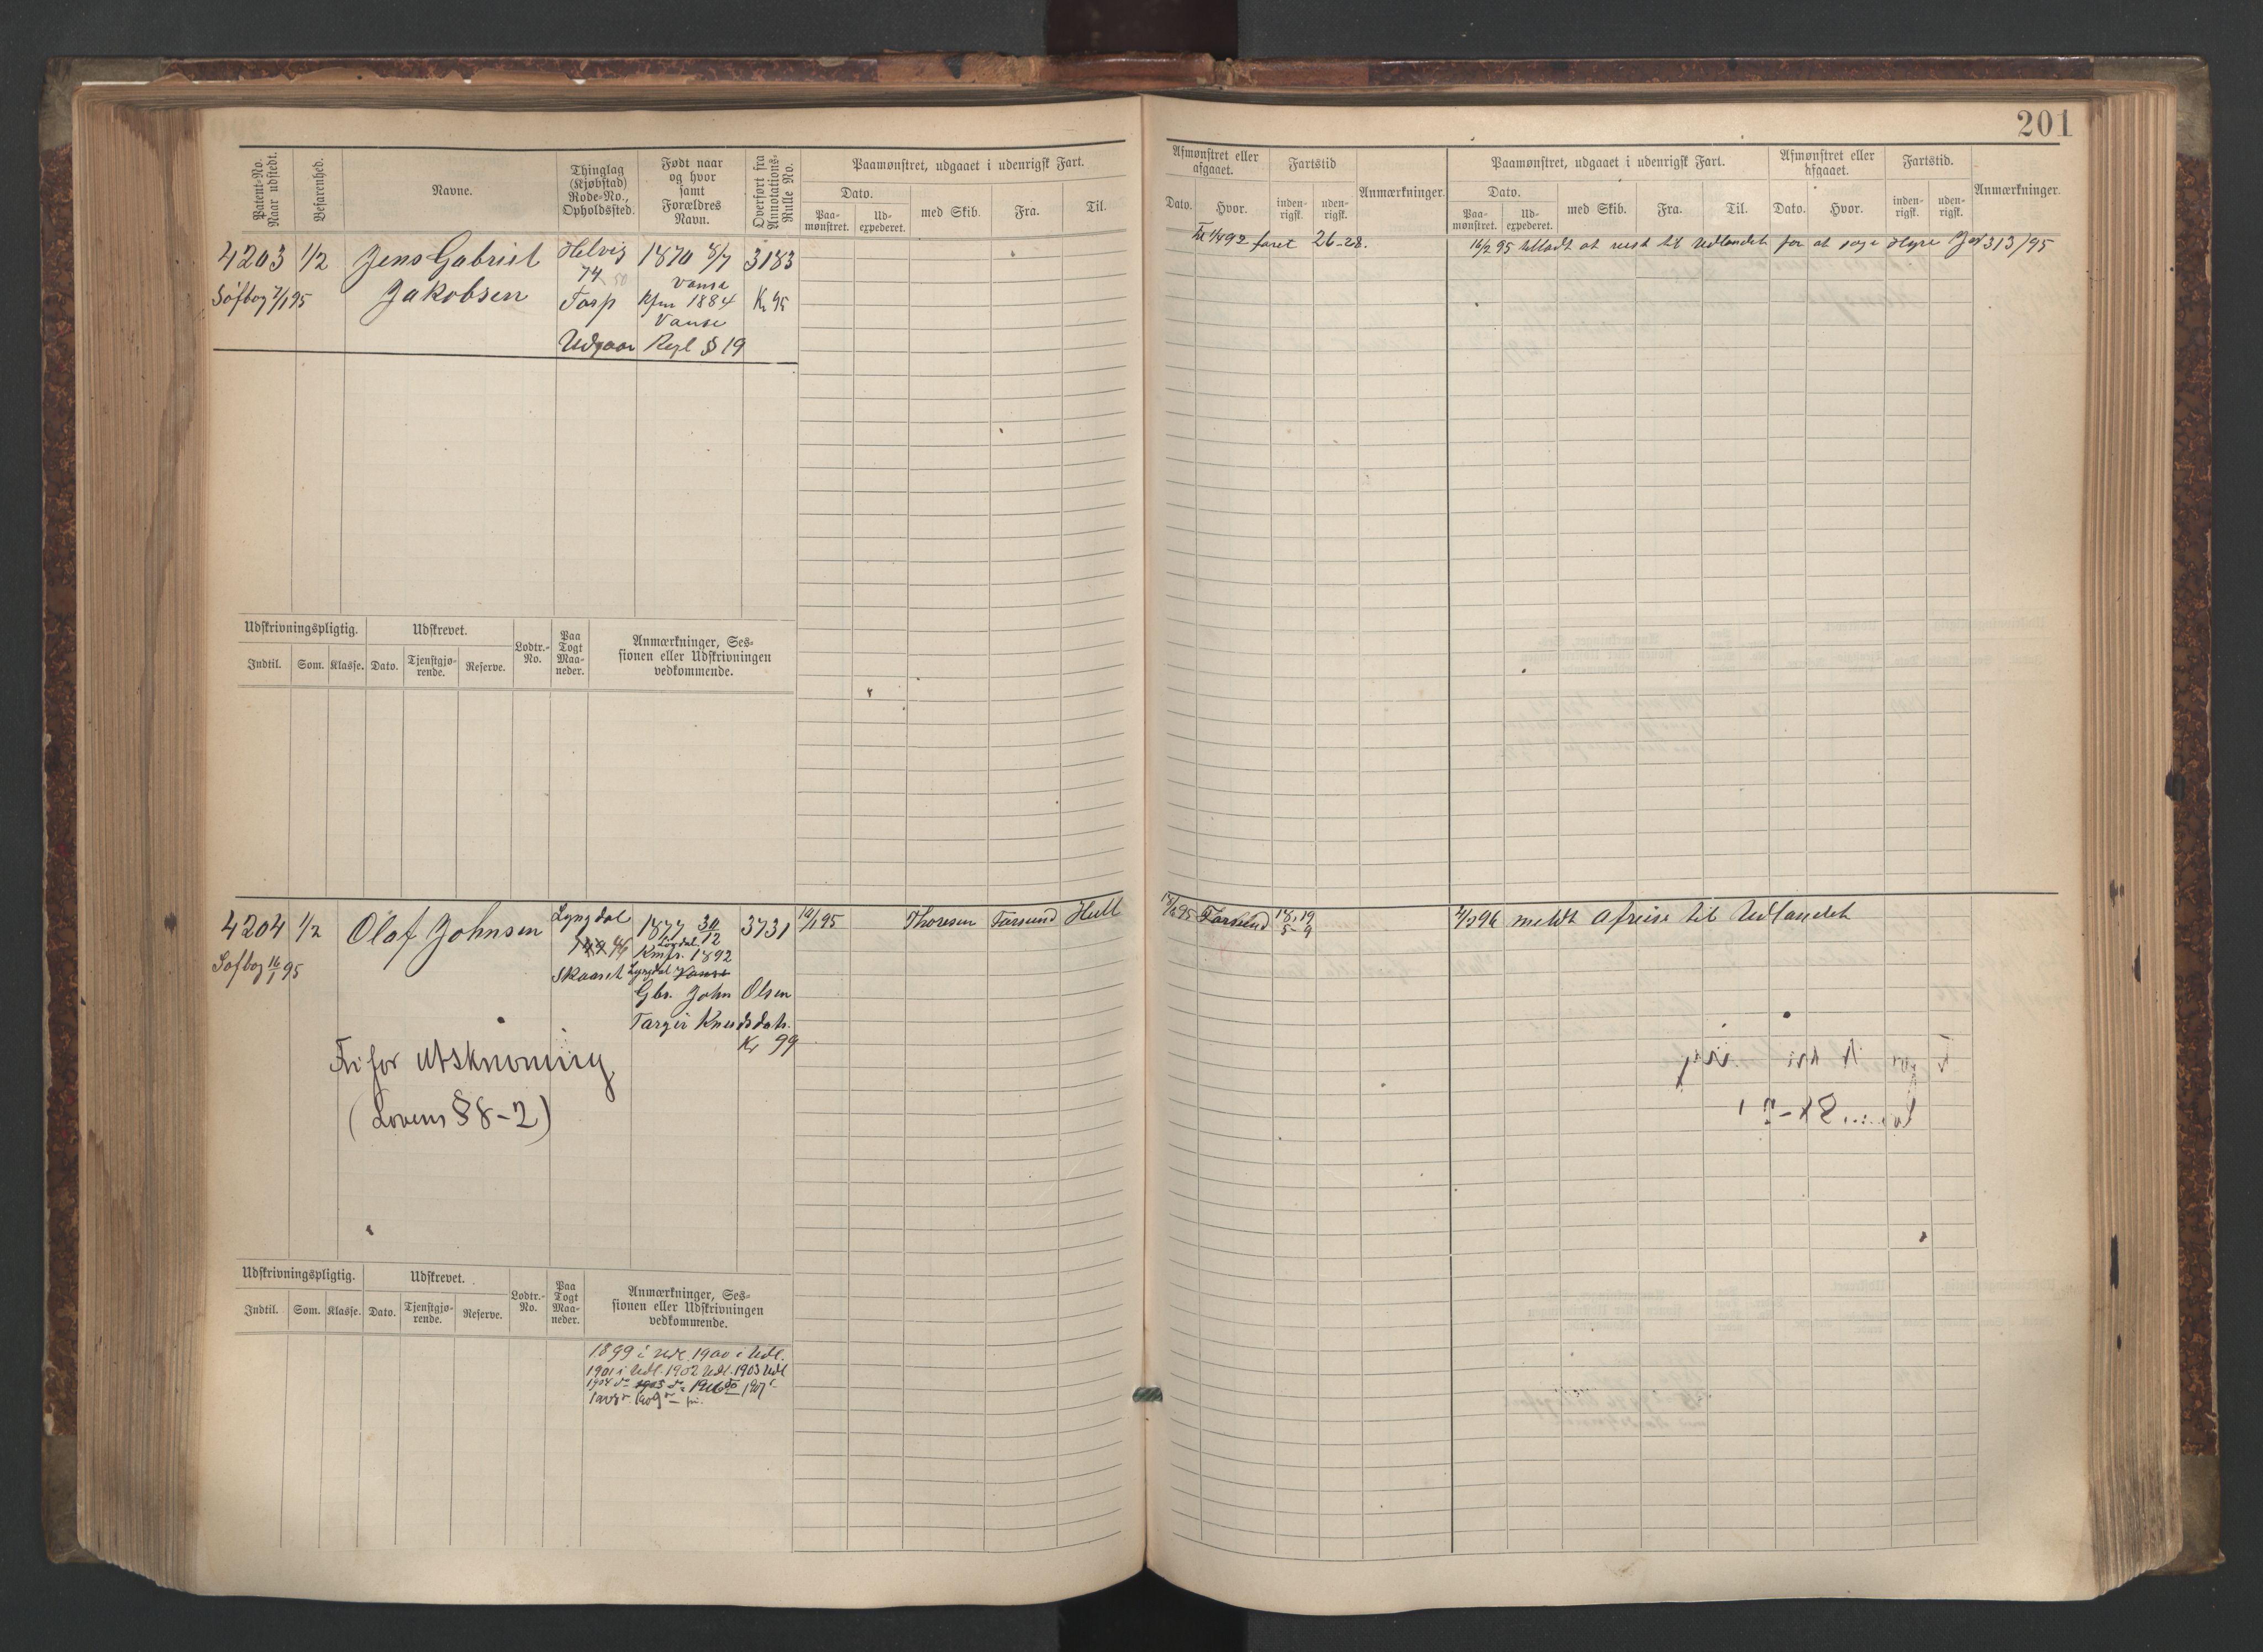 201
Patent-No. Naar udstedt.
Befarenhed.
Navne.
Thinglag (Kjøbstad) Rode-No., Opholdssted.
Født naar og hvor samt Forældres Navn.
Overført fra Annotations-Rulle No.
Paamønstret, udgaaet i udenrigsk Fart.
Dato.
Paa-mønstret.
Ud-expederet.
med Skib.
Fra.
Til.
Afmønstret eller afgaaet.
Dato.
Hvor.
Fartstid
inden-rigsk.
uden-rigsk.
Anmærkninger.
Paamønstret, udgaaet i udenrigsk Fart.
Dato.
Paa-mønstret.
Ud-expederet.
med Skib.
Fra.
Til.
Afmønstret eller afgaaet.
Dato.
Hvor.
Fartstid.
inden-rigsk.
uden-rigsk.
Anmærkninger.
4203 1/2 Jens Gabriel Helvig 1870 8/7 3183
74 50 Vanse
Søfbog 7/1 95 Jakobsen Torp Kfm 1884 Kr 95
Vanse
Udgaar Regl § 19
faret 26-28.
16/2 95 tilladt at reise til Udlandet for at søge Hyre 313/95
Udskrivningspligtig.
Indtil.
Som.
Klasse.
Udskrevet.
Dato.
Tjenstgjø-rende.
Reserve.
Lodtr.-No.
Paa Togt Maa-neder.
Anmærkninger, Ses-
sionen eller Udskrivningen
vedkommende.
4204 1/2 Olaf Johnsen Lyngdal 1877 30/12 3731
46 Kmfr. 1892
Søfbog 16/1 95 Skaaset Lyngdal Vanse
Gbr. John Olsen
Targer Knudsdatr.
Kr 99
Fri for utskrivning
(Lovens § 8-2)
95 Thoresen Farsund Hull
95 Farsund 18.19
5-9
96 meldt Afreise til Udlandet
Udskrivningspligtig.
Indtil.
Som.
Klasse.
Udskrevet.
Dato.
Tjenstgjø-rende.
Reserve.
Lodtr.-No.
Paa Togt Maa-neder.
Anmærkninger, Ses-
sionen eller Udskrivningen
vedkommende.
1899 i Udl. 1900 i Udl.
1901 i Udl. 1902 Udl. 1903 Udl
1904 do 1905 do 1906 do 1907